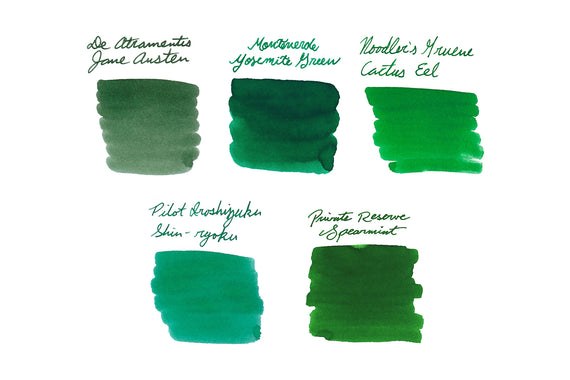 De Atramentis
Jane Austen
Monteverde
Yosemite Green
Noodler's Gruene
Cactus Eel
Pilot Iroshizuku
Shin-ryoku
Private Reserve
Spearmint